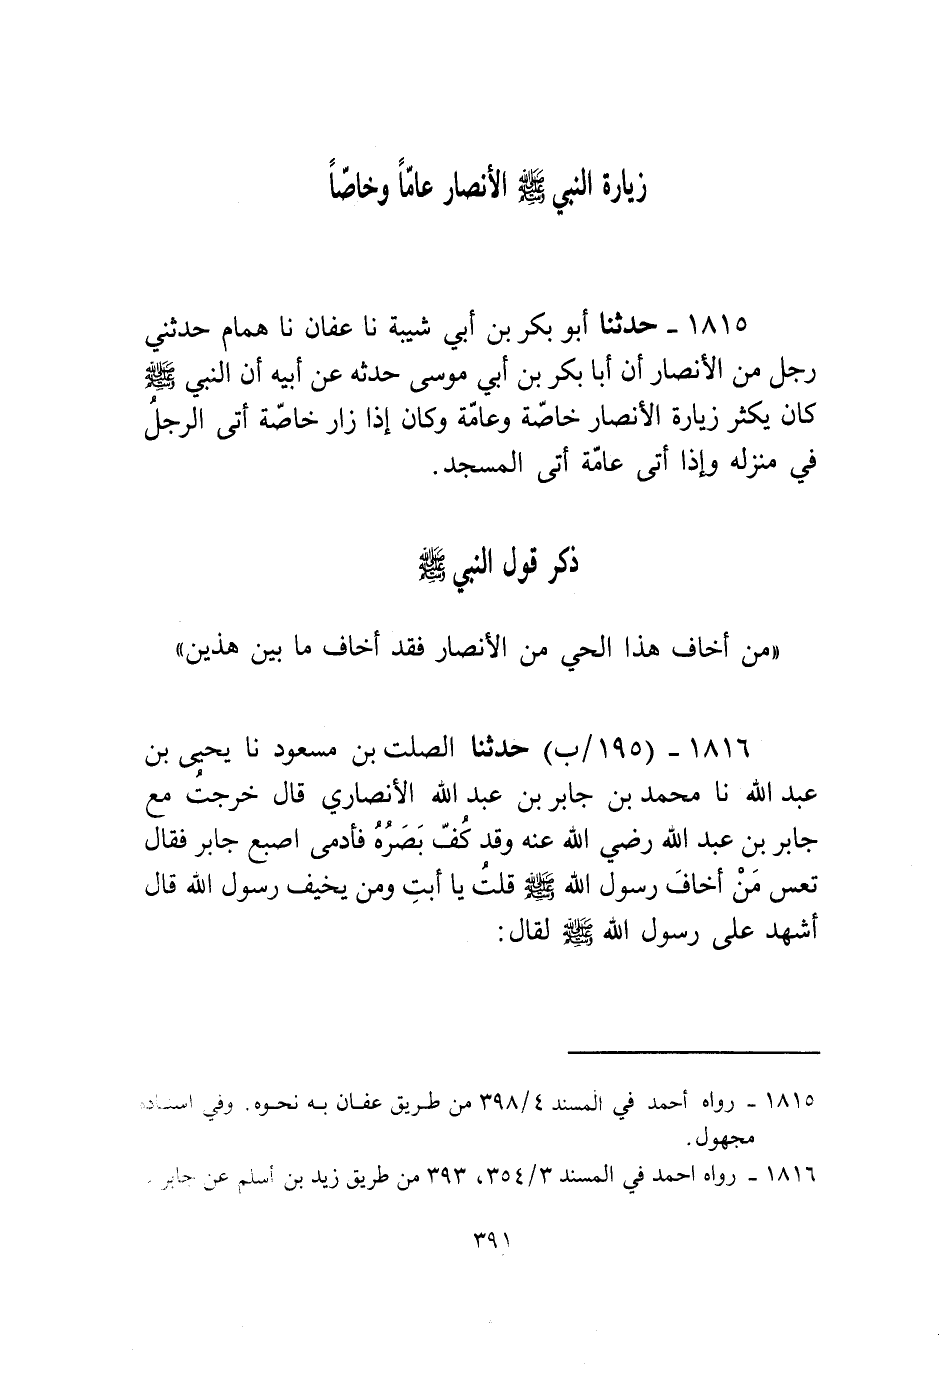 زيارة النبي ﷺ الأنصار عامّاً وخاصّاً
١٨١٥ ـ حدثنا أبو بكر بن أبي شيبة نا عفان نا همام حدثني
رجل من الأنصار أن أبا بكر بن أبي موسى حدثه عن أبيه أن النبي ﷺ
كان يكثر زيارة الأنصار خاصّة وعامّة وكان إذا زار خاصّة أتى الرجلُ
في منزله وإذا أتى عامّة أتى المسجد.
ذكر قول النبي ﷺ
«من أخاف هذا الحي من الأنصار فقد أخاف ما بين هذين»
١٨١٦ ـ (١٩٥/ب) حدثنا الصلت بن مسعود نا يحيى بن
عبد الله نا محمد بن جابر بن عبد الله الأنصاري قال خرجتُ مع
جابر بن عبد الله رضي الله عنه وقد كُفّ بَصَرُهُ فأدمى اصبع جابر فقال
تعس مَنْ أخافَ رسول الله ﷺ قلتُ يا أبتِ ومن يخيف رسول الله قال
أشهد على رسول الله ﷺ لقال:
١٨١٥ ـ رواه أحمد في المسند ٣٩٨/٤ من طريق عفان به نحوه. وفي اسناده
مجهول.
١٨١٦ ـ رواه احمد في المسند ٣٥٤/٣، ٣٩٣ من طريق زيد بن أسلم عن جابر .
٣٩١